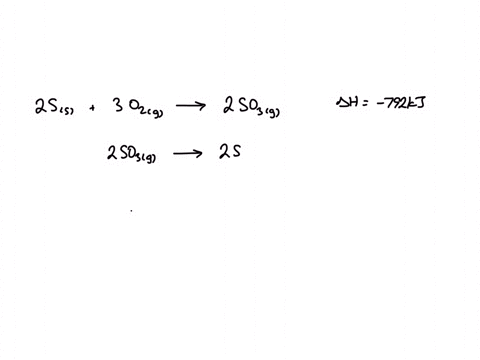 2S(s) + 3 O2(g) → 2SO3(g) ΔH = -792kJ
2SO3(g) → 2S